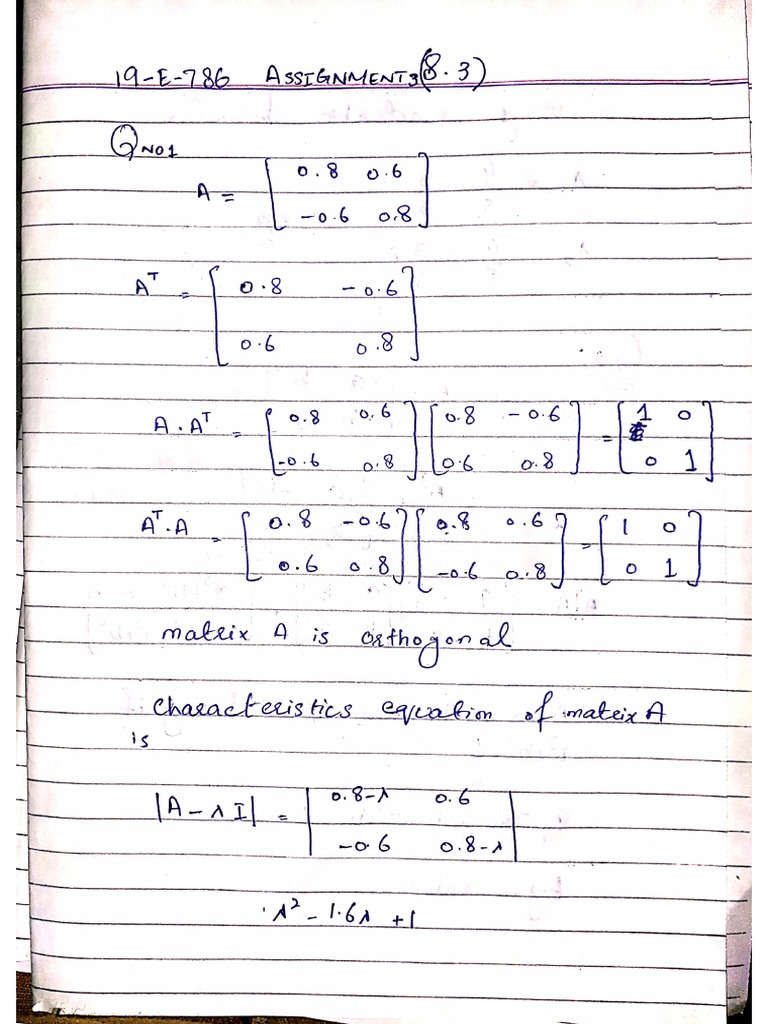 19-E-786 ASSIGNMENT3(8.3)
QNO1
A = [0.8 0.6
-0.6 0.8]
Aᵀ = [0.8 -0.6
0.6 0.8]
A.Aᵀ = [0.8 0.6 [0.8 -0.6 = [1 0
-0.6 0.8] 0.6 0.8] 0 1]
Aᵀ.A = [0.8 -0.6 [0.8 0.6 = [1 0
0.6 0.8] -0.6 0.8] 0 1]
matrix A is orthogonal
characteristics equation of matrix A
is
|A-λI| = |0.8-λ 0.6
-0.6 0.8-λ|
λ² - 1.6λ + 1